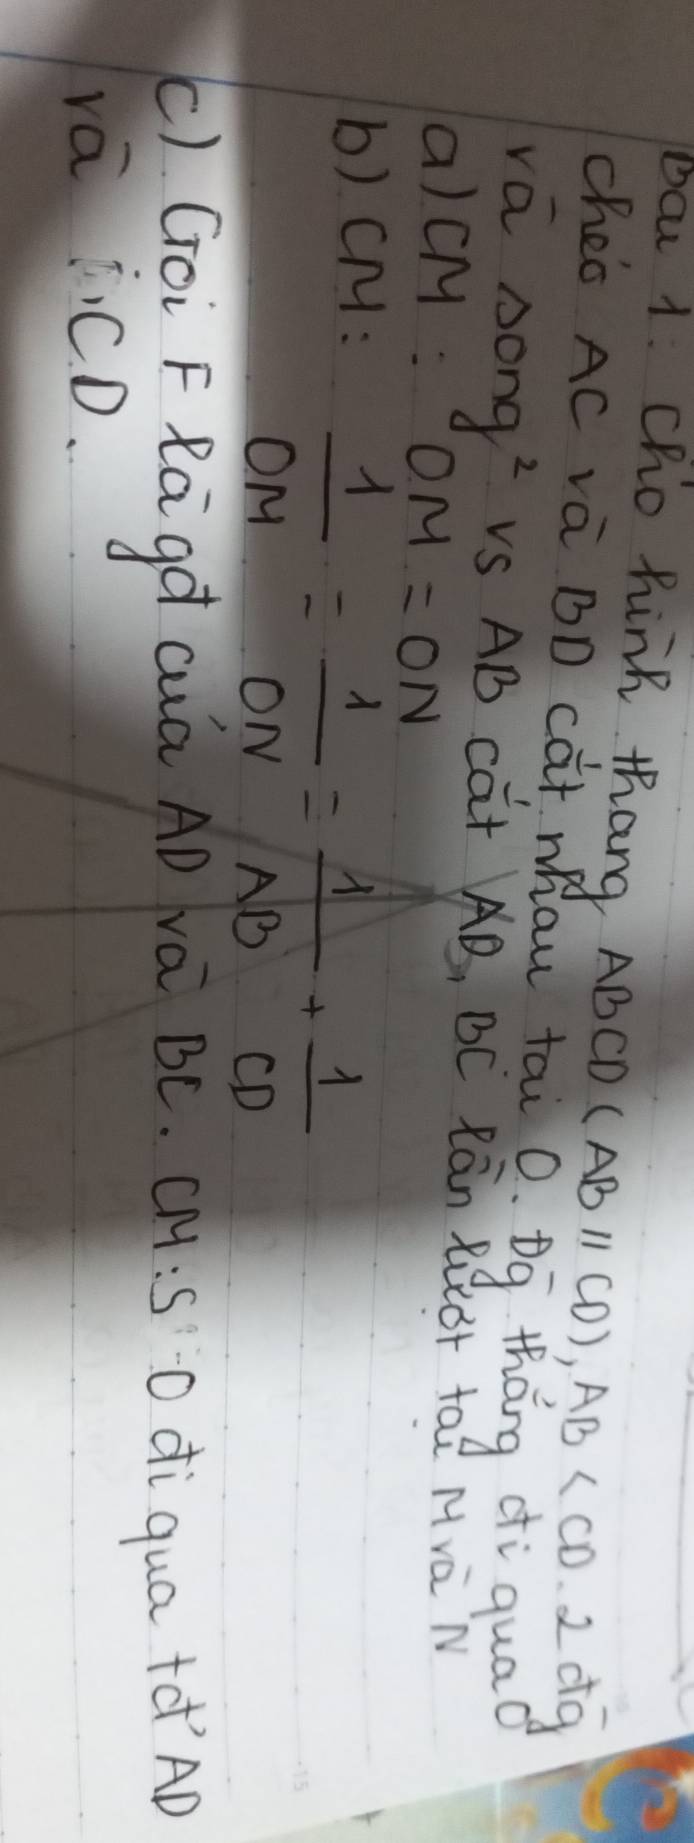 Bài 1: Cho hình thang ABCD (AB // CD), AB < CD. 2 đg
chéo AC và BD cắt nhau tại O. Đg thẳng đi qua O
và song² vs AB cắt AD, BC lần lượt tại M và N
a) CM: OM = ON
b) CM: 1/OM = 1/ON = 1/AB + 1/CD
c) Gọi F là gđ của AD và BC. CM: O đi qua tđ AD
và CD.